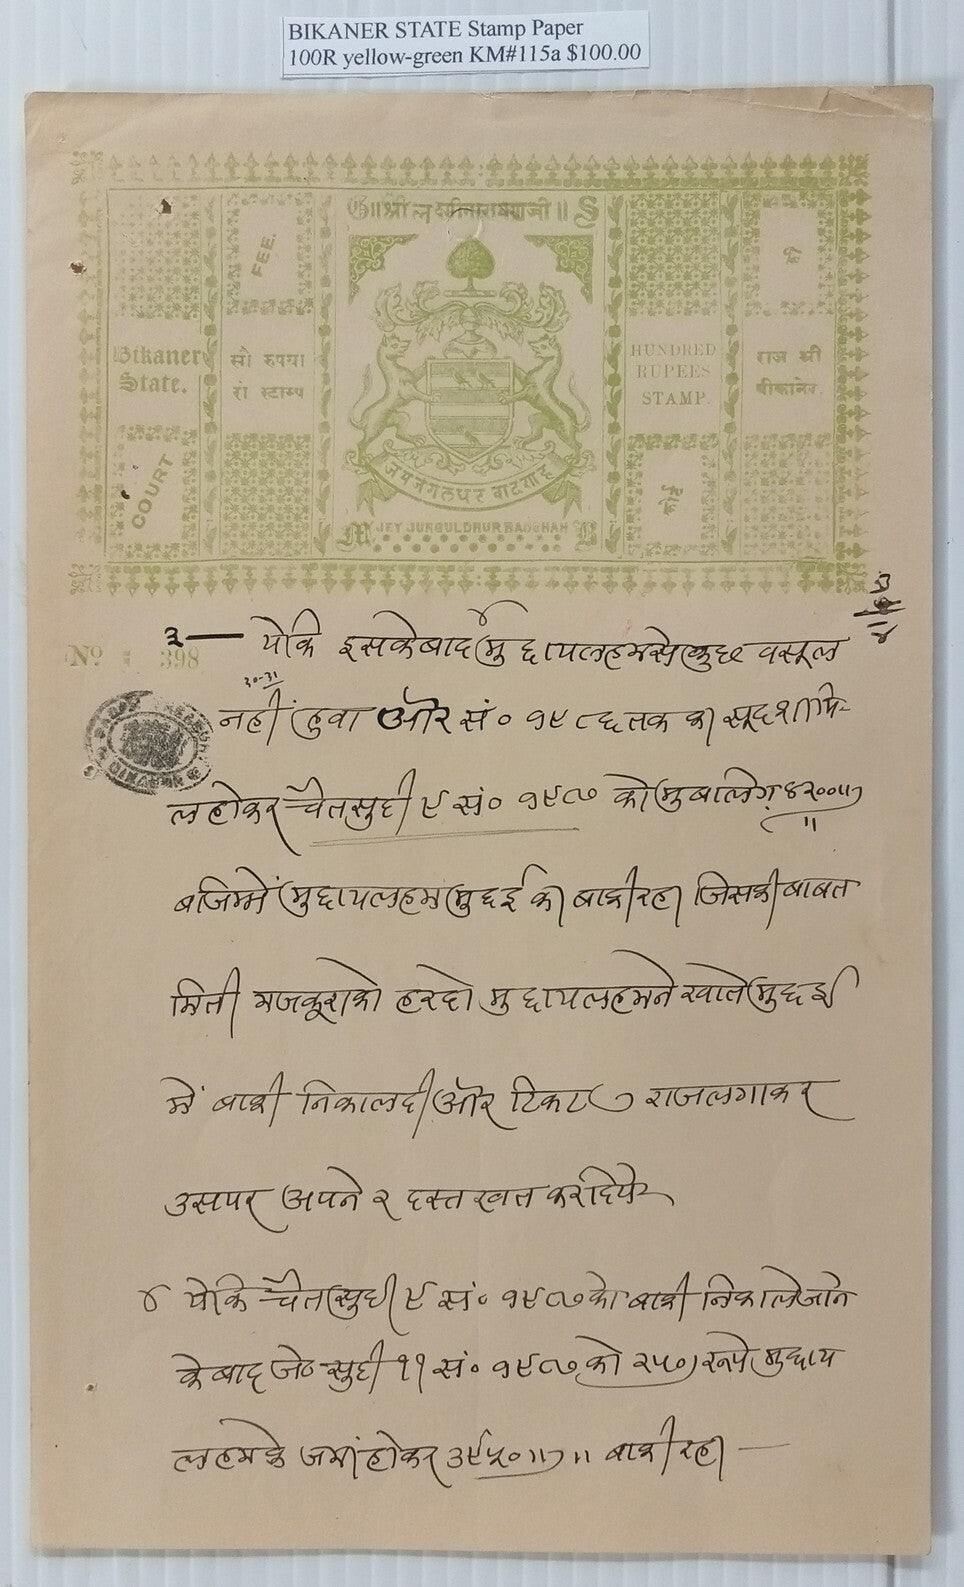 BIKANER STATE Stamp Paper
100R yellow-green KM#115a $100.00
G ॥ श्री लक्ष्मीनारायणजी ॥ S
FEE.
Bikaner
State.
सौ रुपया
रो स्टाम्प
HUNDRED
RUPEES
STAMP.
राज श्री
बीकानेर
COURT
कोर्ट
फी
जयजंगलधर बादशाह
M JEY JUNGULDHUR BADSHAH B
No 398
३ — येकि इसकेबाद मुद्दायलहमसे कुछ वसूल
३०-३१
नहीं हुवा और सं० १९८६ तक का सूद शामि-
लहोकर चैतसुदी ९ सं० १९८७ को मुबालिग ४२००॥)
॥
बजिम्में मुद्दायलहम मुद्दई का बाकी रहा जिसकी बाबत
मिती मजकूराको हरदो मुद्दायलहमने खाते मुद्दई
में बाकी निकालदी और टिकट राजलगाकर
उसपर अपने २ दस्तखत करदिये
४ येकि चैतसुदी ९ सं० १९८७ को बाकी निकालेजाने
के बाद जेठ सुदी ११ सं० १९८७ को २५०) रुपे मुद्दाय
लहमके जमां होकर ३९५०॥)॥ बाकी रहा —